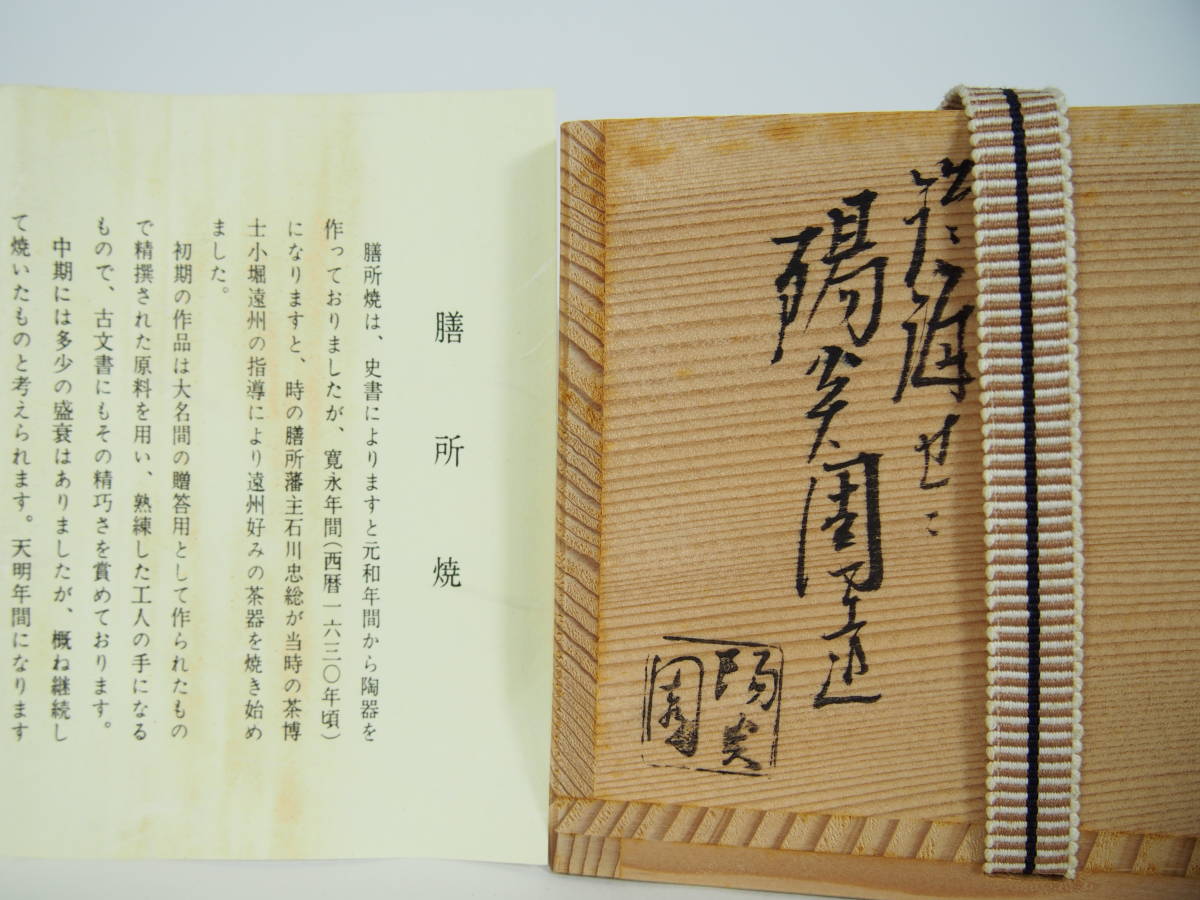 膳所焼
膳所焼は、史書によりますと元和年間から陶器を
作っておりましたが、寛永年間(西暦一六三〇年頃)
になりますと、時の膳所藩主石川忠総が当時の茶博
士小堀遠州の指導により遠州好みの茶器を焼き始め
ました。
初期の作品は大名間の贈答用として作られたもの
で精撰された原料を用い、熟練した工人の手になる
もので、古文書にもその精巧さを賞めております。
中期には多少の盛衰はありましたが、概ね継続し
て焼いたものと考えられます。天明年間になります
陽炎園造
陽炎
園